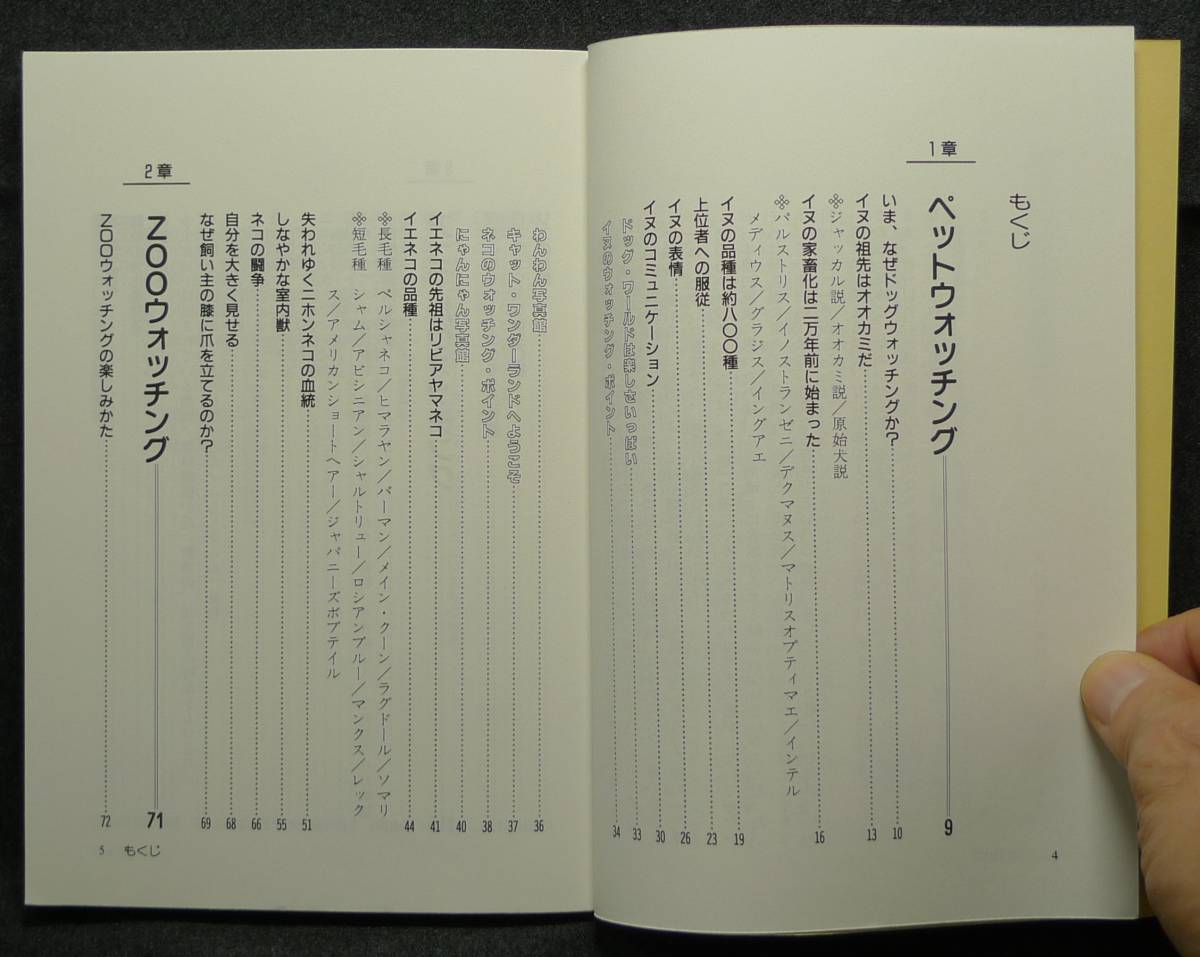 もくじ
1章
ペットウォッチング 9
いま、なぜドッグウォッチングか? 10
イヌの祖先はオオカミだ 13
※ジャッカル説/オオカミ説/原始犬説
イヌの家畜化は二万年前に始まった 16
※パルストリス/イノストランゼニ/デクマヌス/マトリスオプティマエ/インテル
メディウス/グラジス/イングアエ
イヌの品種は約八〇〇種 19
上位者への服従 23
イヌの表情 26
イヌのコミュニケーション 30
ドッグ・ワールドは楽しさいっぱい 33
イヌのウォッチング・ポイント 34
4
わんわん写真館 36
キャット・ワンダーランドへようこそ 37
ネコのウォッチング・ポイント 38
にゃんにゃん写真館 40
イエネコの先祖はリビアヤマネコ 41
イエネコの品種 44
※長毛種 ペルシャネコ/ヒマラヤン/バーマン/メイン・クーン/ラグドール/ソマリ
※短毛種 シャム/アビシニアン/シャルトリュー/ロシアンブルー/マンクス/レック
ス/アメリカンショートヘアー/ジャパニーズボブテイル
失われゆくニホンネコの血統 51
しなやかな室内獣 55
ネコの闘争 66
自分を大きく見せる 68
なぜ飼い主の膝に爪を立てるのか? 69
2章
ZOOウォッチング 71
ZOOウォッチングの楽しみかた 72
5 もくじ